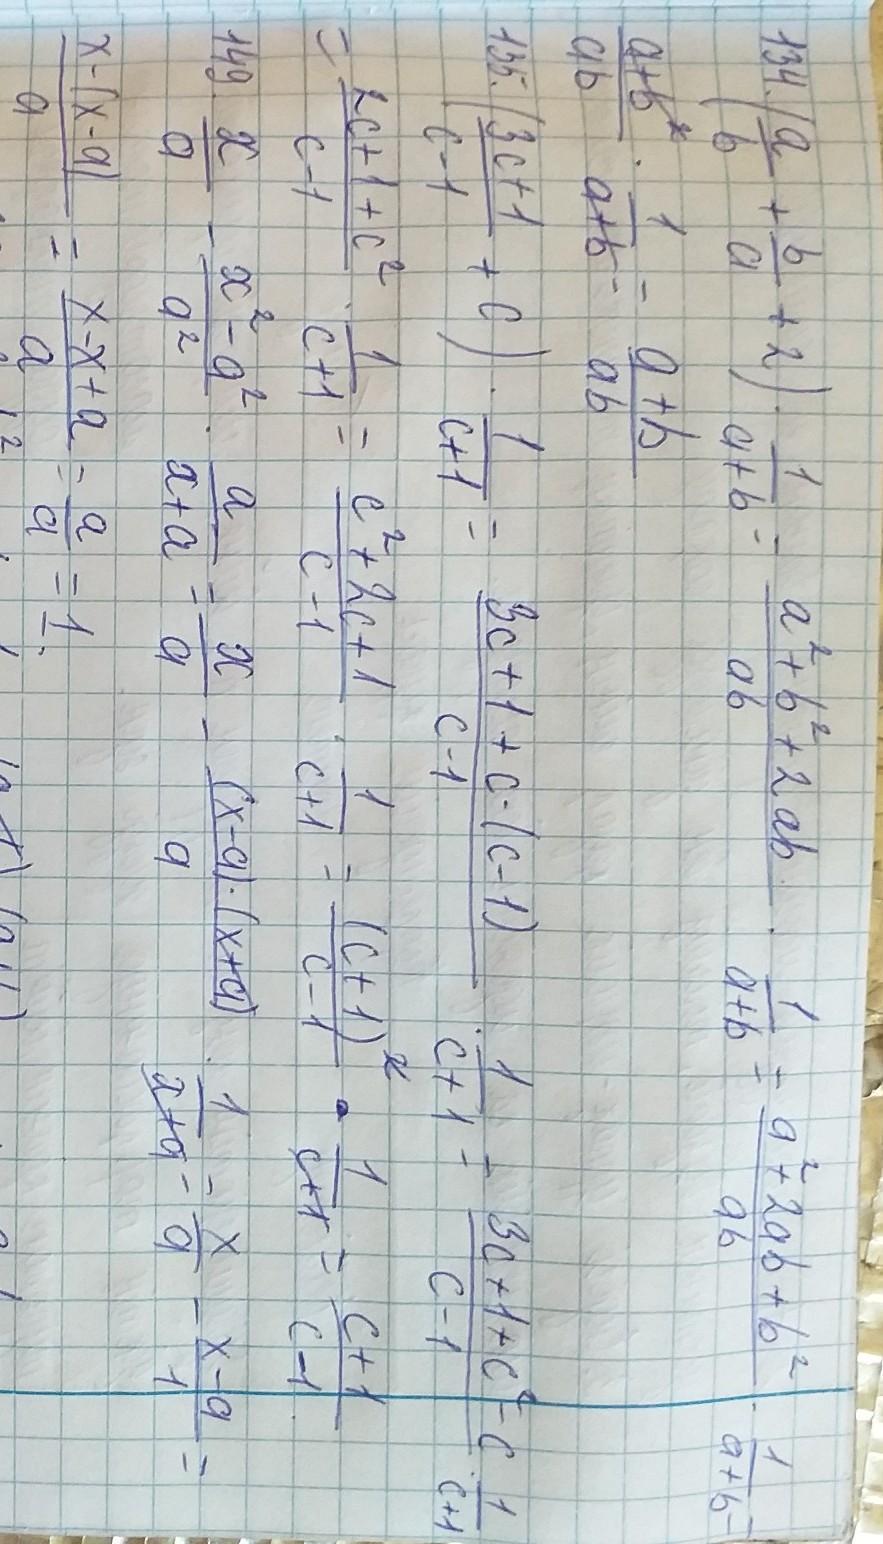 134. (a/b + b/a + 2) · 1/(a+b) = (a² + b² + 2ab)/ab · 1/(a+b) = (a² + 2ab + b²)/ab · 1/(a+b) =
(a+b)²/ab · 1/(a+b) = (a+b)/ab
135. ((3c+1)/(c-1) + c) · 1/(c+1) = (3c+1+c·(c-1))/(c-1) · 1/(c+1) = (3c+1+c²-c)/(c-1) · 1/(c+1)
= (2c+1+c²)/(c-1) · 1/(c+1) = (c²+2c+1)/(c-1) · 1/(c+1) = (c+1)²/(c-1) · 1/(c+1) = (c+1)/(c-1)
149. x/a - (x²-a²)/a² · a/(x+a) = x/a - (x-a)·(x+a)/a · 1/(x+a) = x/a - (x-a)/1 =
(x-(x-a))/a = (x-x+a)/a = a/a = 1.